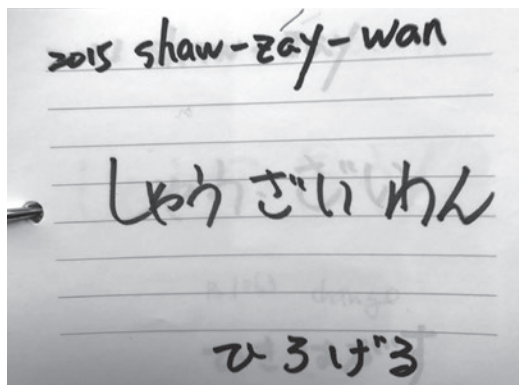 2015 shaw-záy-wan
しゃう ざい わん
ひろげる